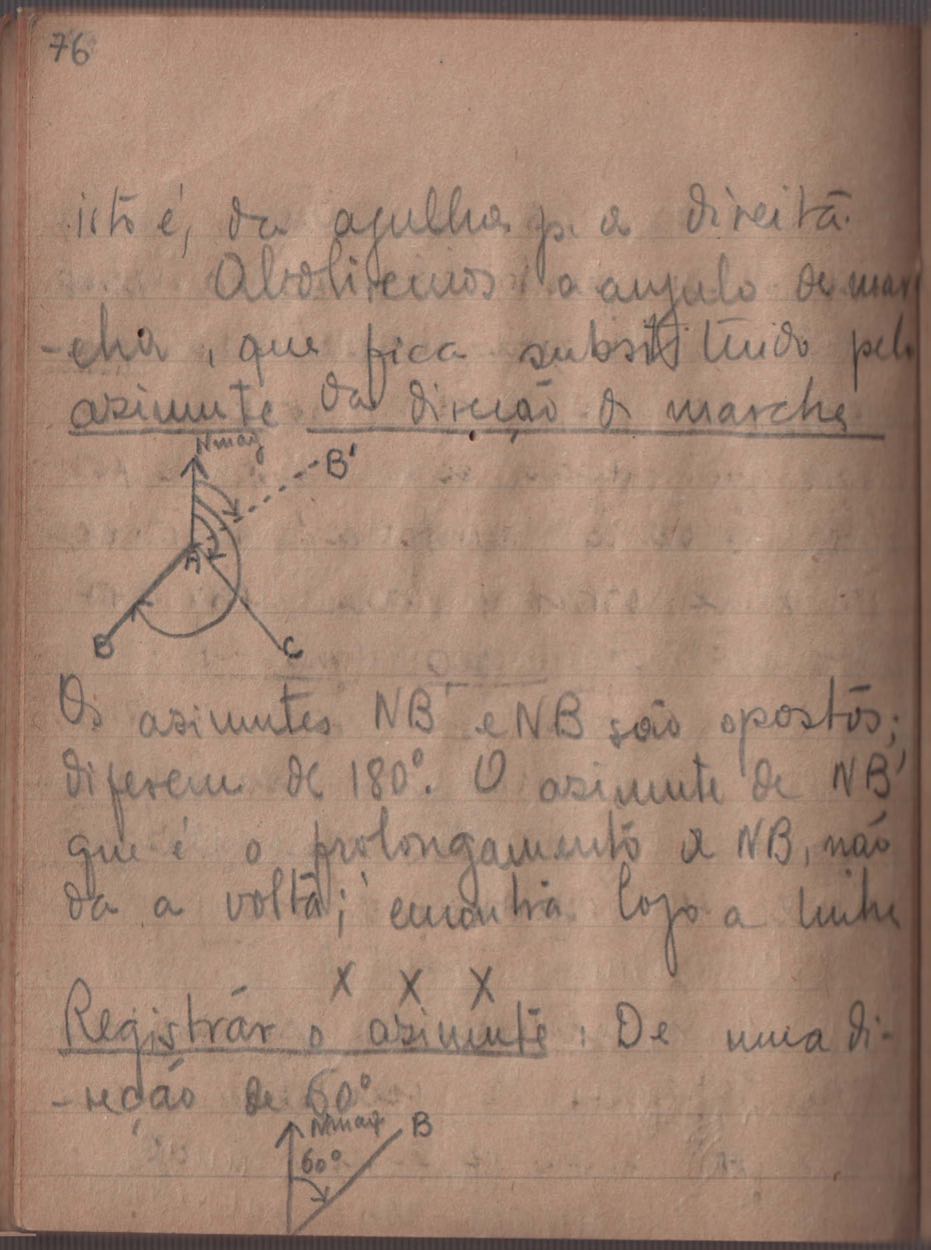 76
isto é, da agulha p. a direita.
Aboliremos o angulo de mar
-cha, que fica substituido pelo
azimute da direção de marcha
Nmag
B'
A
B
C
Os azimutes NB e NB são opostos;
diferem de 180°. O azimute de NB'
que é o prolongamento de NB, não
da a volta; encontra logo a linha
X X X
Registrár o azimute: De uma di-
-reção de 60°
Nmag B
60°